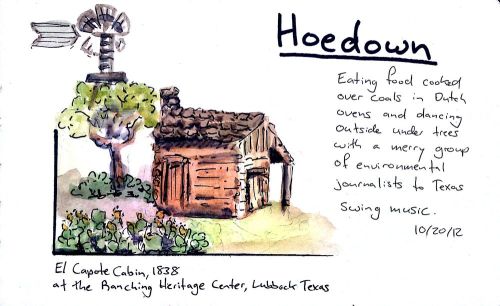 Hoedown
Eating food cooked
over coals in Dutch
ovens and dancing
outside under trees
with a merry group
of environmental
journalists to Texas
Swing music.
10/20/12
El Capote Cabin, 1838
at the Ranching Heritage Center, Lubbock Texas